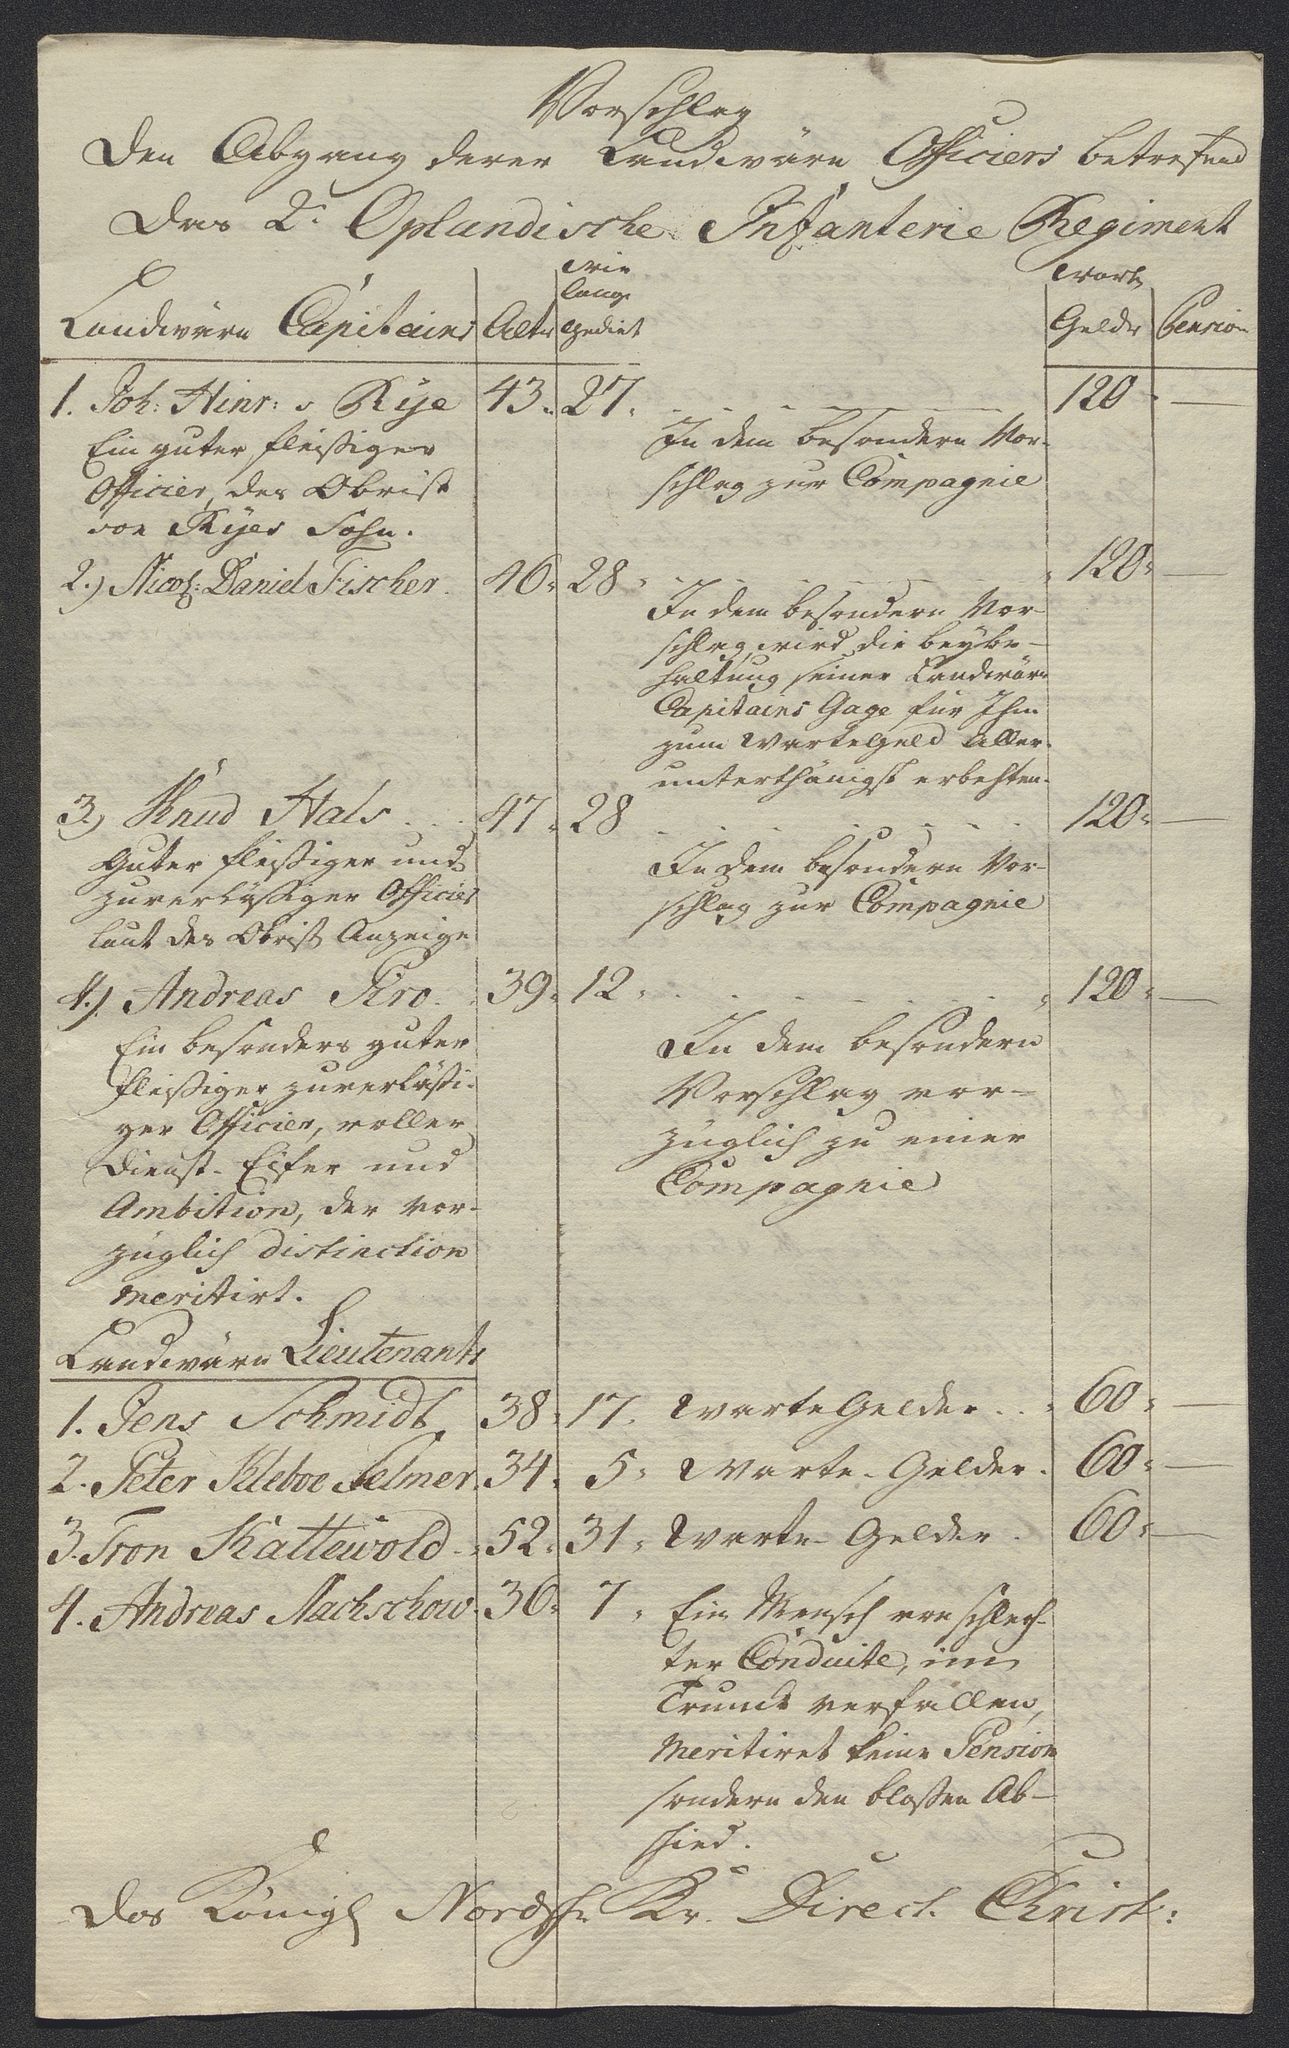 Vorschlag
Den Abgang derer Landwärn Officiers betrefend
Das 2te Oplandische Infanterie Regiment
Landwärn Capitains | Alter | wie lange gedient | warte Gelder | Pension
1. Joh: Hinr: v Rye 43. 27. 120 —
Ein guter fleißiger
Officier, des Obrist
von Ryes Sohn.
In dem besondern Vor-
schlag zur Compagnie
2.) Nicol: Daniel Fischer. 46. 28 120. —
In dem besondern Vor-
schlag wird die beybe-
haltung seiner Landwärn
Capitains Gage für Ihm
zum Wartegeld aller-
unterthänigst erbehten.
3.) Knud Hals 47. 28 120. —
Guter fleißiger und
zuverläßiger Officier
laut des Obrist Anzeige
In dem besondern Vor-
schlag zur Compagnie
4.) Andreas Kiro. 39. 12. 120. —
Ein besonders guter
fleißiger zuverläßi-
ger Officier, voller
Dienst-Eifer und
Ambition, der vor-
züglich distinction
meritirt.
In dem besondern
Vorschlag vor-
züglich zu einer
Compagnie
Landwärn Lieutenants
1. Jens Schmidt 38. 17. Warte Gelder. 60. —
2. Peter Kleboe Selmer. 34. 5. Warte-Gelder. 60. —
3. Tron Kattewold. 52. 31. Warte-Gelder. 60. —
4. Andreas Nachschow. 36. 7. Ein Mensch von schlech-
ter Conduite, im
Trunck verfallen,
meritiret keine Pension
sondern den bloßen Ab-
schied.
Das Königl Nordsche Kr. Direct. Christ: